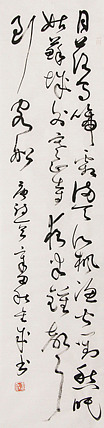 月落烏啼霜滿天江楓漁火對愁眠
姑蘇城外寒山寺夜半鐘聲
到客船